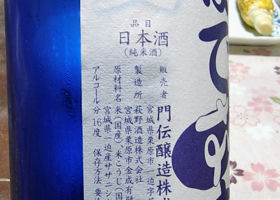 品目
日本酒
(純米酒)
販売者
門伝醸造株
宮城県栗原市一迫
製造所
萩野酒造株式会社
宮城県栗原市金成有
原材料名 米(国産)、米こうじ(国
宮城県一迫産ササニシ
アルコール分 16度 保存方法